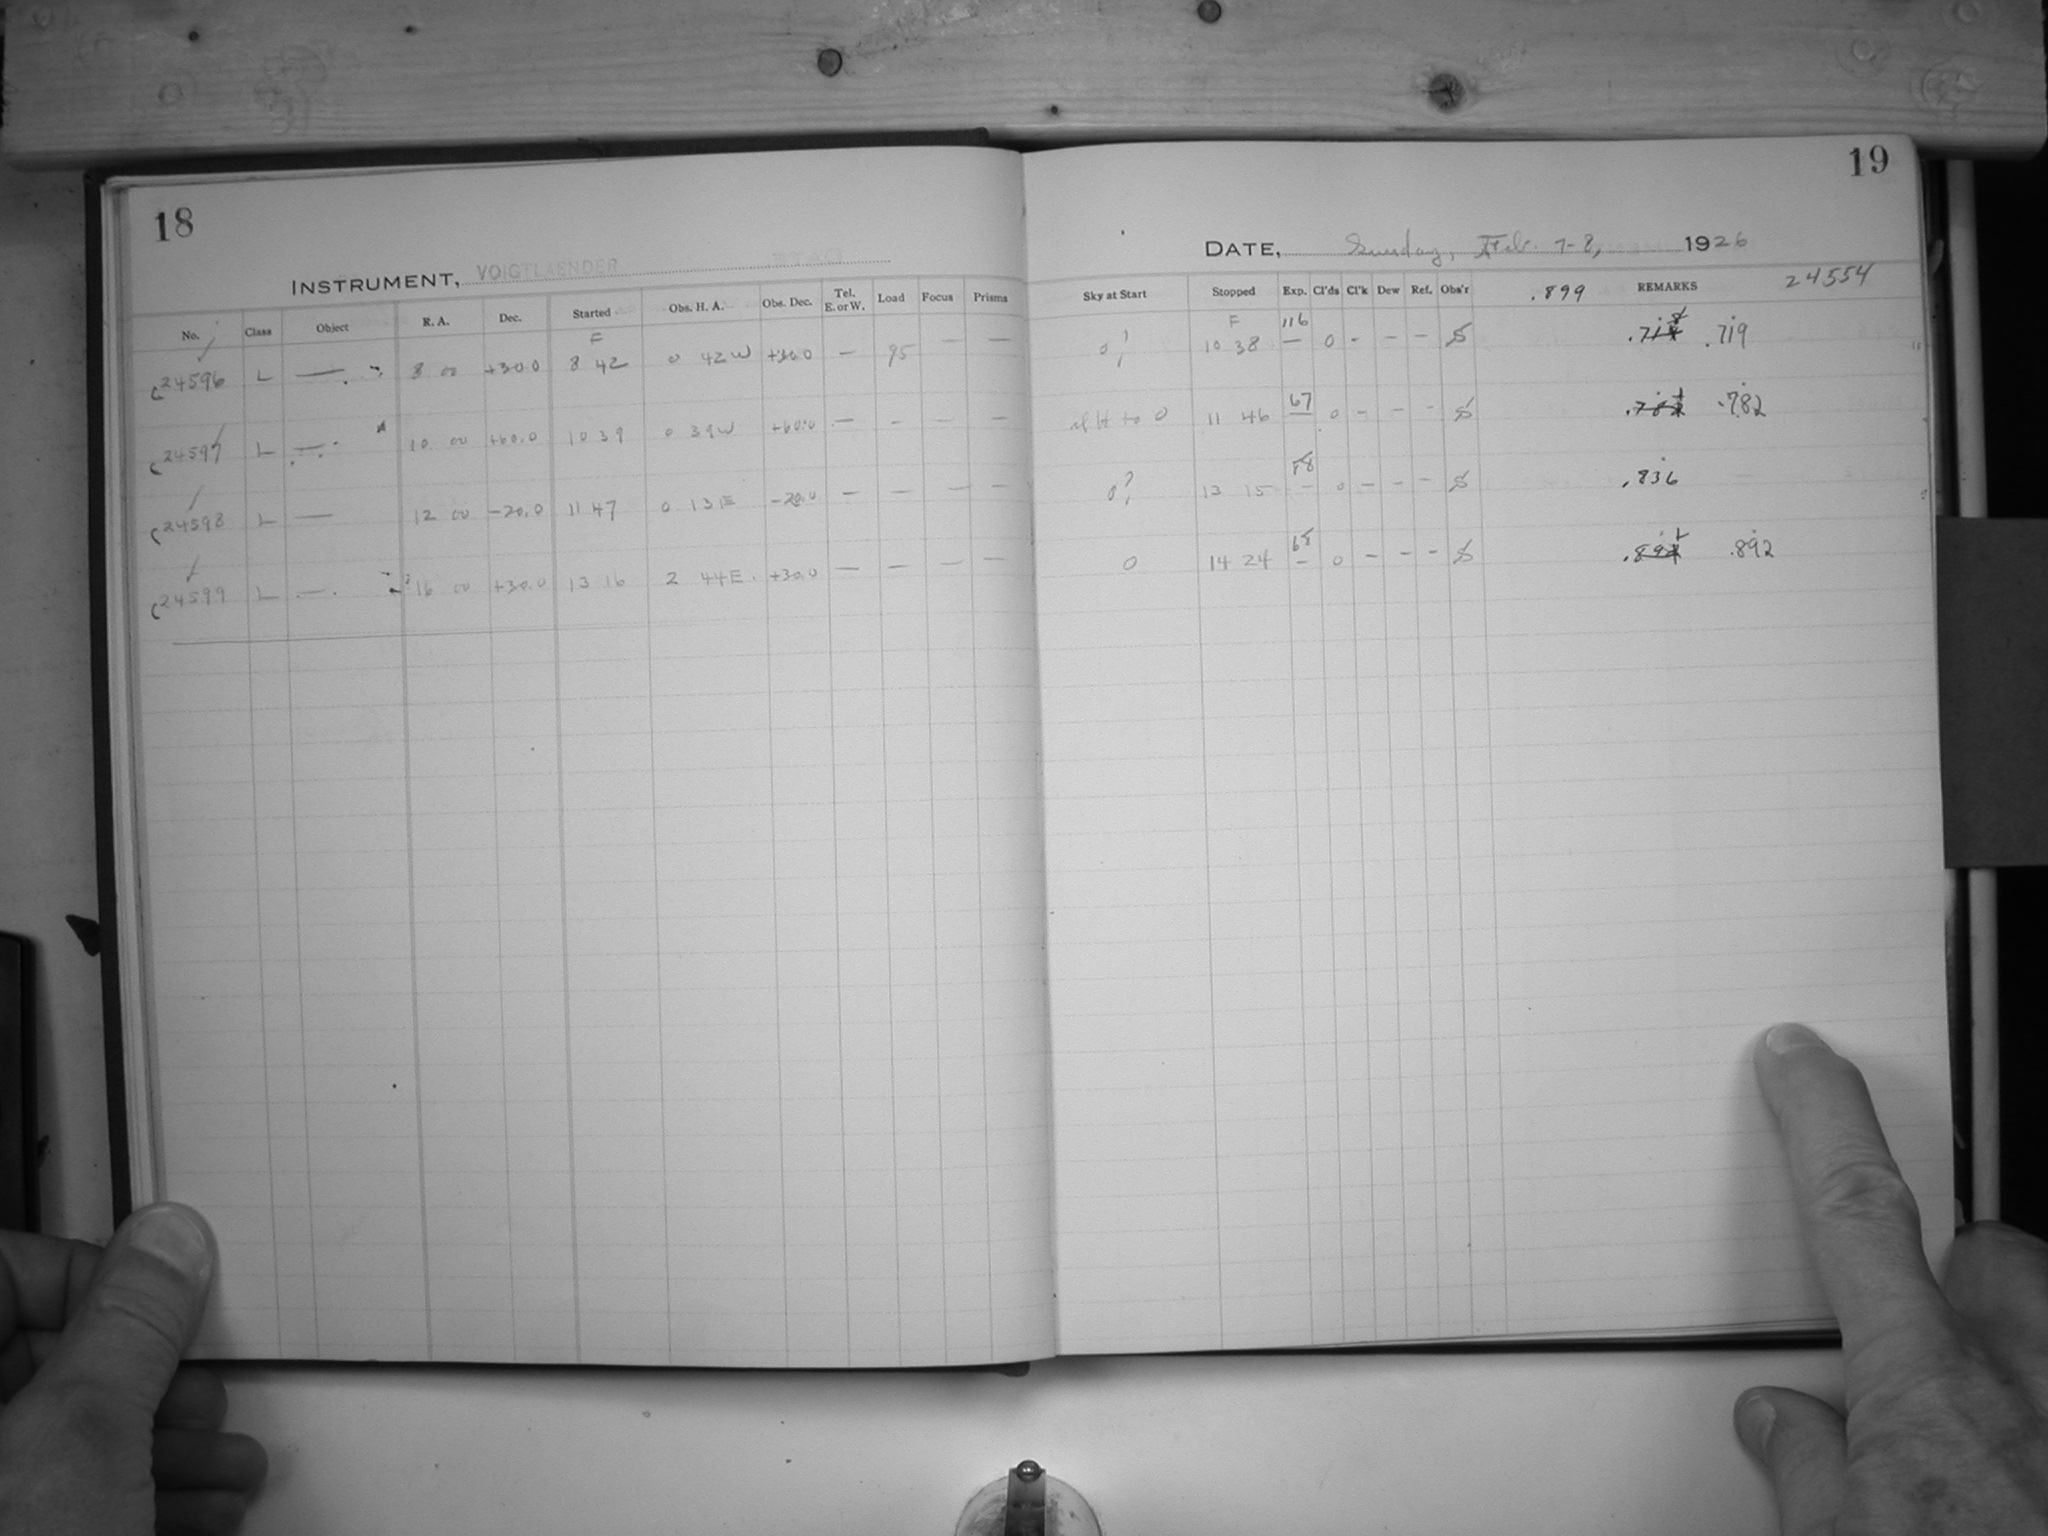 18
INSTRUMENT, VOIGTLAENDER
No. Class Object R. A. Dec. Started Obs. H. A. Obs. Dec. Tel. E. or W. Load Focus Prisms
F
C24596 L — 8 00 +30.0 8 42 0 42 W +30.0 — 95 — —
C24597 L — 10 00 +60.0 10 39 0 39 W +60.0 — - — —
C24598 L — 12 00 -20.0 11 47 0 13 E -20.0 — — — —
C24599 L — 16 00 +30.0 13 16 2 44 E. +30.0 — — — —
19
DATE, Sunday, Feb. 7-8, 1926
24554
Sky at Start Stopped Exp. Cl'ds Cl'k Dew Ref. Obs'r .899 REMARKS
F 116
10 38 — 0 - - - S .719
67
H to 0 11 46 — 0 - - - S .782
88
0? 13 15 - 0 - - - S .836
68
0 14 24 - 0 - - - S .892